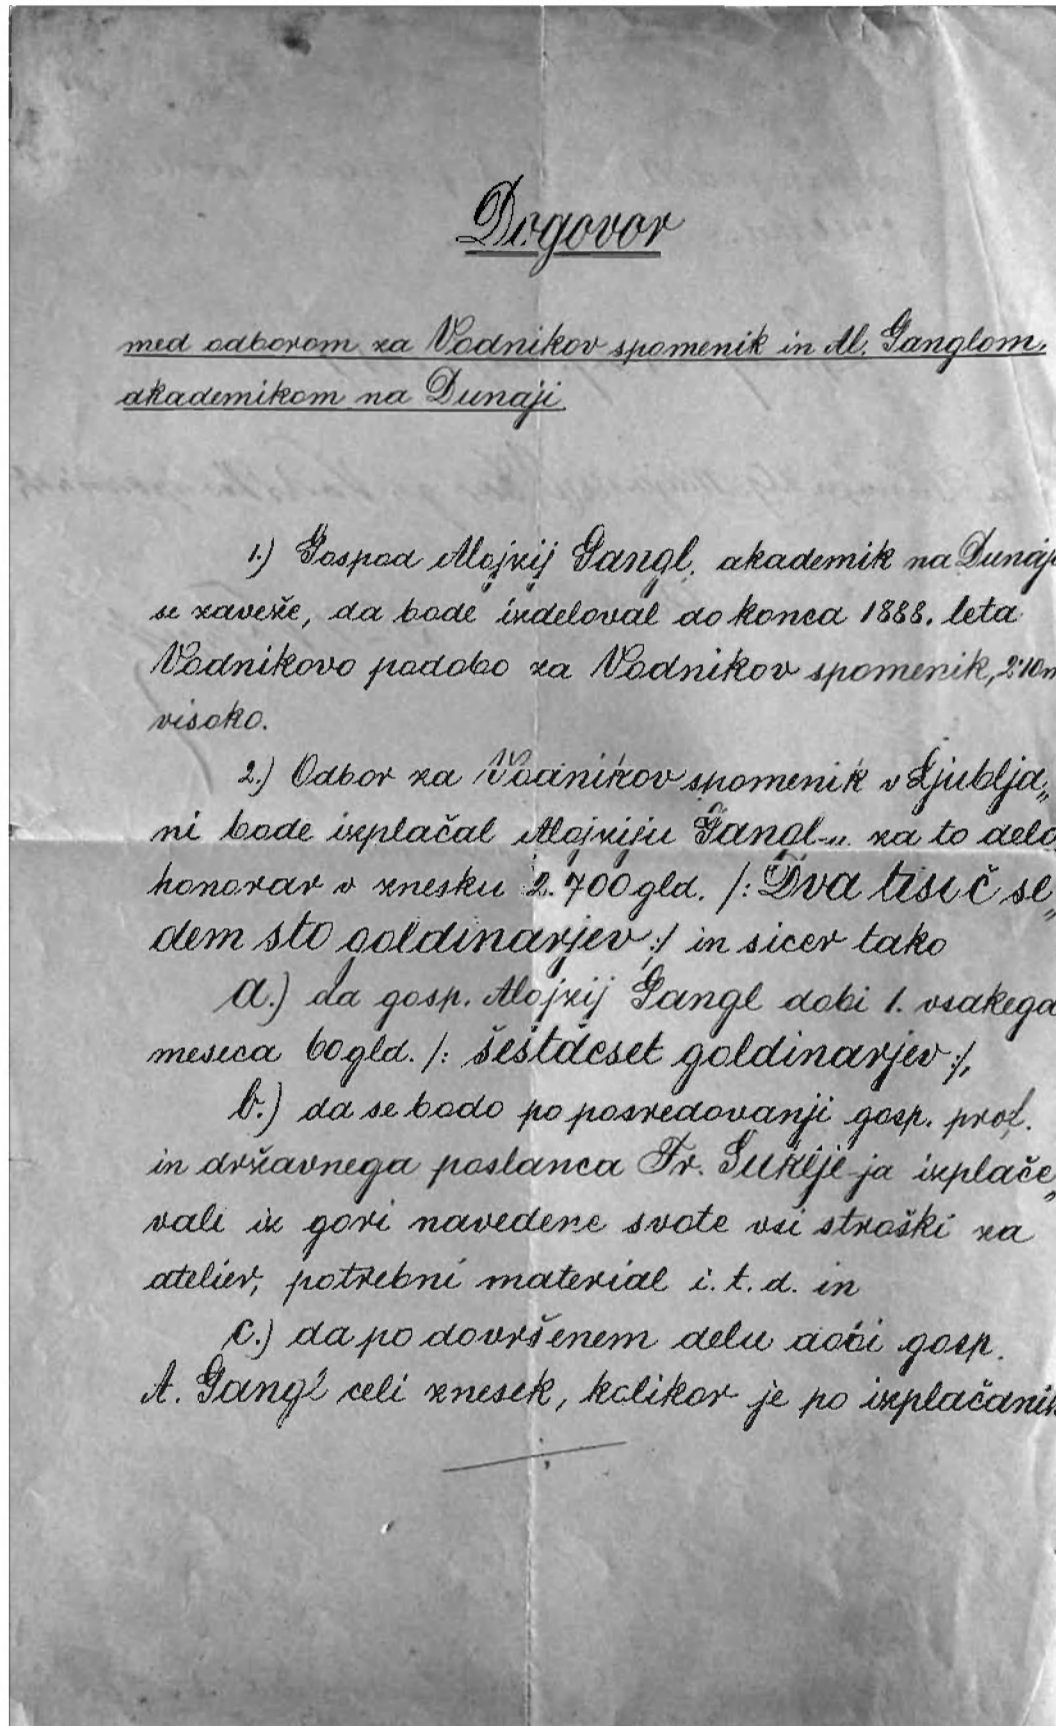 Dogovor
med odborom za Vodnikov spomenik in Al. Ganglom,
akademikom na Dunaji.
1.) Gospod Alojzij Gangl, akademik na Dunaji
se zaveže, da bode izdeloval do konca 1888. leta
Vodnikovo podobo za Vodnikov spomenik, 2·10 m
visoko.
2.) Odbor za Vodnikov spomenik v Ljublja„
ni bode izplačal Alojziju Gangl-u za to delo
honorar v znesku 2.700 gld. /: Dva tisič se„
dem sto goldinarjev :/ in sicer tako
a.) da gosp. Alojzij Gangl dobi 1. vsakega
meseca 60 gld. /: šestdeset goldinarjev :/,
b.) da se bodo po posredovanji gosp. prof.
in državnega poslanca Fr. Šuklje-ja izplače„
vali iz gori navedene svote vsi stroški za
atelier, potrebni material i. t. d. in
c.) da po dovršenem delu dobi gosp.
A. Gangl celi znesek, kolikor je po izplačanih